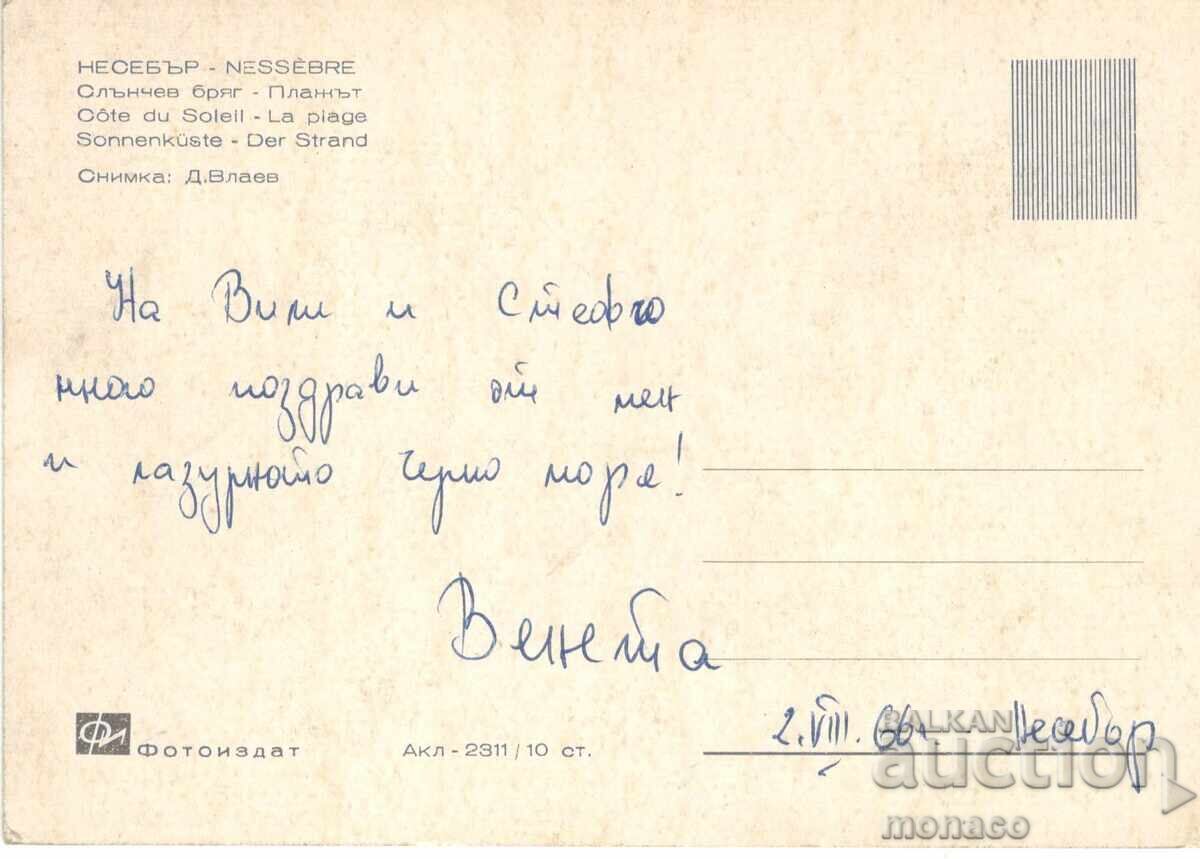 НЕСЕБЪР - NESSÈBRE
Слънчев бряг - Плажът
Côte du Soleil - La plage
Sonnenküste - Der Strand
Снимка: Д.Влаев
На Вили и Стефчо
много поздрави от мен
и лазурното Черно море!
Венета
2.VIII.66г. Несебър
ФИ Фотоиздат Акл - 2311/10 ст.
BALKAN
auction
monaco